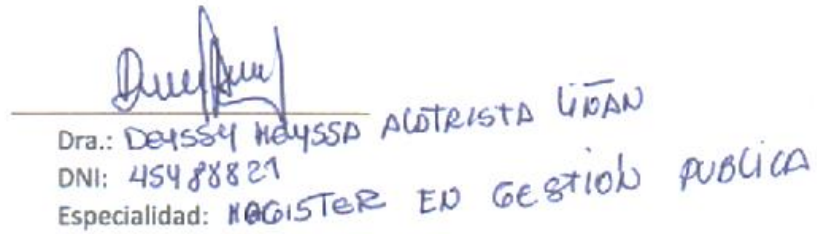 Dra.: DEYSSY MEYSSA ACOTRISTA
DNI: 45488821
Especialidad: MAGISTER EN GESTION PUBLICA